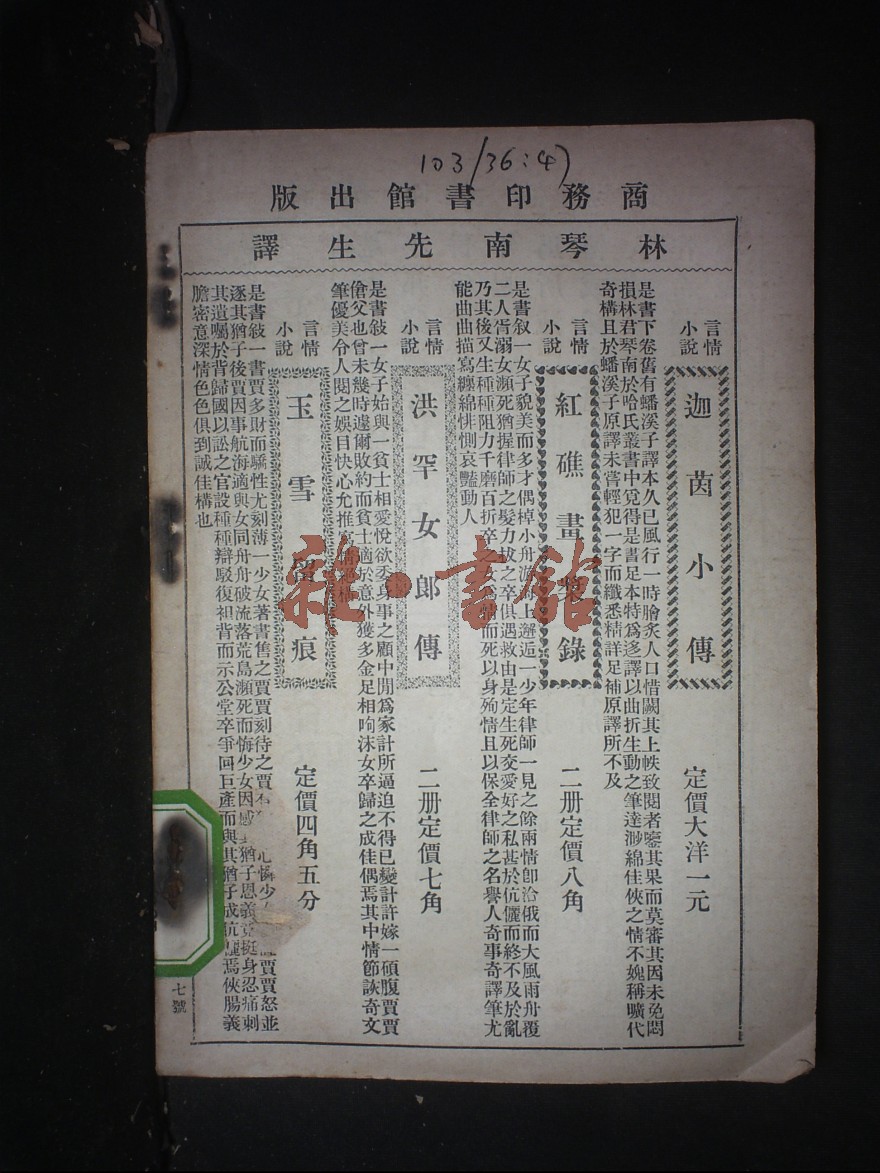 103/36:4)
商務印書館出版
林琴南先生譯
言情小說
迦茵小傳
定價大洋一元
是書下卷舊有蟠溪子譯本久已風行一時膾炙人口惜闕其上帙致閱者鑒其果而莫審其因未免悶
損林君琴南於哈氏叢書中覓得是書足本特為迻譯以曲折生動之筆達渺綿佳俠之情不媿稱曠代
奇構且於蟠溪子原譯未嘗輕犯一字而纖悉精詳足補原譯所不及
言情小說
紅礁畫槳錄
二册定價八角
是書叙一女子貌美而多才偶棹小舟游上邂逅一少年律師一見之餘兩情卽洽俄而大風雨舟覆
二人胥溺女瀕死猶握律師之髮力拔之卒俱遇救由是定生死交愛好之私甚於伉儷而終不及於亂
乃其後又生種種阻力千磨百折卒女情而死以身殉情且以保全律師之名譽人奇事奇譯筆尤
能曲曲描寫纏綿悱惻哀豔動人
言情小說
洪罕女郎傳
二册定價七角
是書敍一女子始與一貧士相愛悅欲委身事之顧中閒為家計所逼迫不得已變計許嫁一碩腹賈賈
傖父也曾未幾時遽爾敗約而貧士適於意外獲多金足相呴沫女卒歸之成佳偶焉其中情節詼奇文
筆優美令人閱之娛目快心允推
言情小說
玉雪留痕
定價四角五分
是書敍一書賈多財而驕性尤刻薄一少女著書售之賈賈刻待之賈心憐少賈賈怒並
逐其猶子後賈因事航海適與女同舟舟破流落荒島瀕死而悔少女因感猶子恩義挺身忍痛刺
其遺囑於背歸國以訟之官設種種辯駁復袒背而示公堂卒爭回巨產而與其猶子成伉儷焉俠腸義
膽密意深情色色俱到誠佳構也
七號
雜·書館